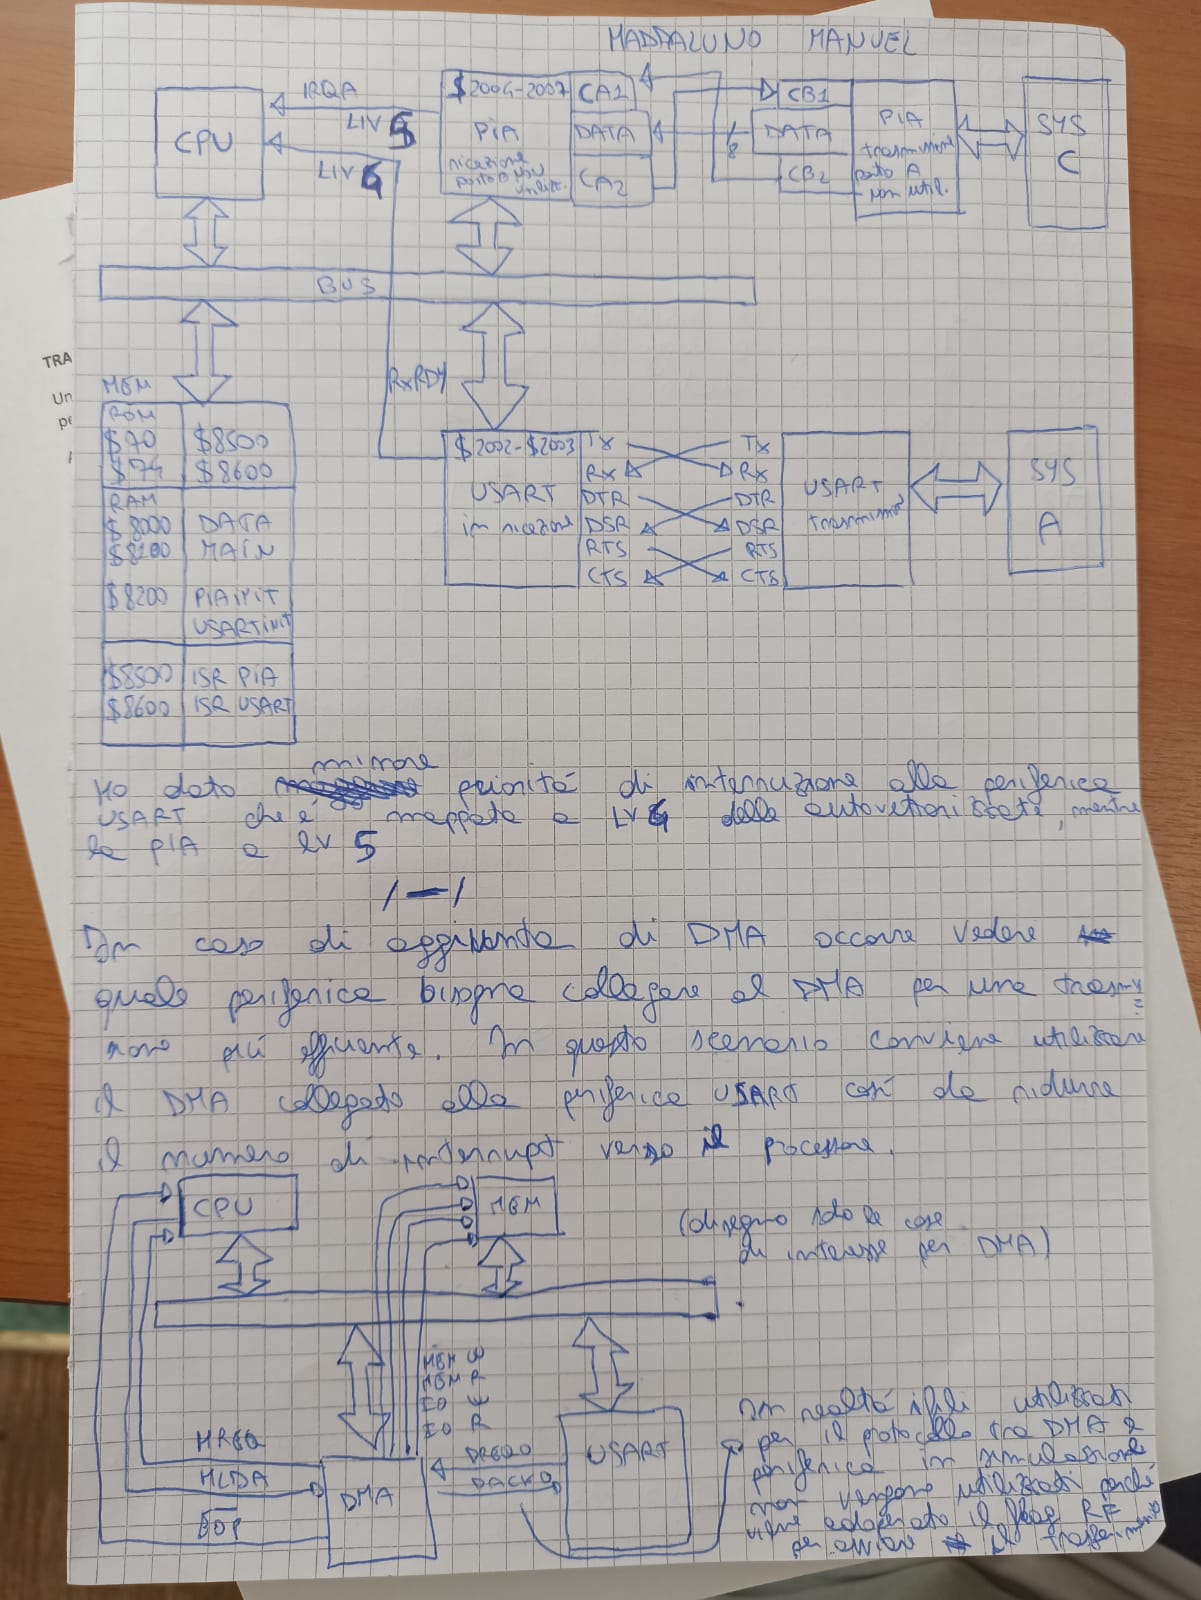 MADDALUNO MANUEL
CPU
IRQA
LIV 5
LIV 4
$2004-2007
PIA
ricezione
porto B non
utilizz.
CA1
DATA
CA2
8
CB1
DATA
CB2
PIA
trasmissione
porto A
non util.
SYS
C
BUS
RxRDY
TRA
Un
pe
MEM
ROM
$70 $8500
$74 $8600
RAM
$8000 DATA
$8100 MAIN
$8200 PIAINIT
USARTINIT
$8500 ISR PIA
$8600 ISR USART
$2002-$2003
USART
in ricezione
TX
RX
DTR
DSR
RTS
CTS
TX
RX
DTR
DSR
RTS
CTS
USART
SYS
A
minore
Ho dato priorità di interruzione alla periferica
USART che è mappata a LV4 della autovettorizzata, mentre
la PIA a LV 5
In caso di aggiunta di DMA occorre vedere
quale periferica bisogna collegare al DMA per una trasmis=
sione più efficiente. In questo scenario conviene utilizzare
il DMA collegato alla periferica USART così da ridurre
il numero di interrupt verso il processore.
CPU
MEM
(disegno solo le cose
di interesse per DMA)
MEM W
MEM R
IO W
IO R
HREQ
HLDA
EOP
DMA
DREQ0
DACK0
USART
In realtà i fili utilizzati
per il protocollo tra DMA e
periferica in simulazione
non vengono utilizzati perché
viene adoperato il flag RF
per avviare il trasferimento